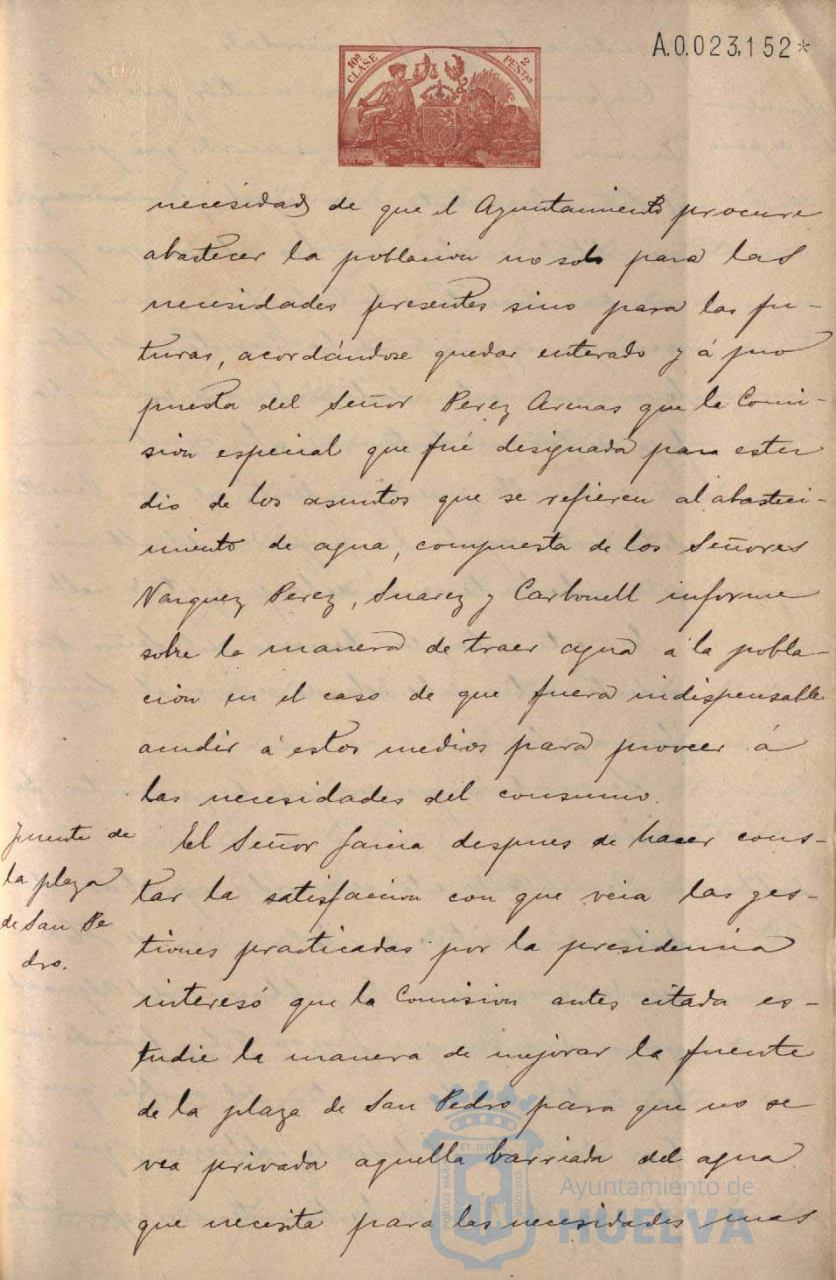 A.0.023,152*
10ª CLASE
2 PESETAS
necesidad de que el Ayuntamiento procure
abastecer la poblacion no solo para las
necesidades presentes sino para las fu-
turas, acordándose quedar enterado y á pro
puesta del Señor Perez Armas que la Comi-
sion especial que fué designada para estu
dio de los asuntos que se refieren al abasteci-
miento de agua, compuesta de los Señores
Vazquez Perez, Suarez y Carbonell informe
sobre la manera de traer agua á la pobla-
cion en el caso de que fuera indispensable
acudir á estos medios para proveer á
las necesidades del consumo.
fuente de
la plaza
de San Pe
dro.
El Señor Garcia despues de hacer cons-
tar la satisfaccion con que veia las ges-
tiones practicadas por la presidencia
interesó que la Comision antes citada es-
tudie la manera de mejorar la fuente
de la plaza de San Pedro para que no se
vea privada aquella barriada del agua
que necesita para las necesidades mas
Ayuntamiento de
HUELVA